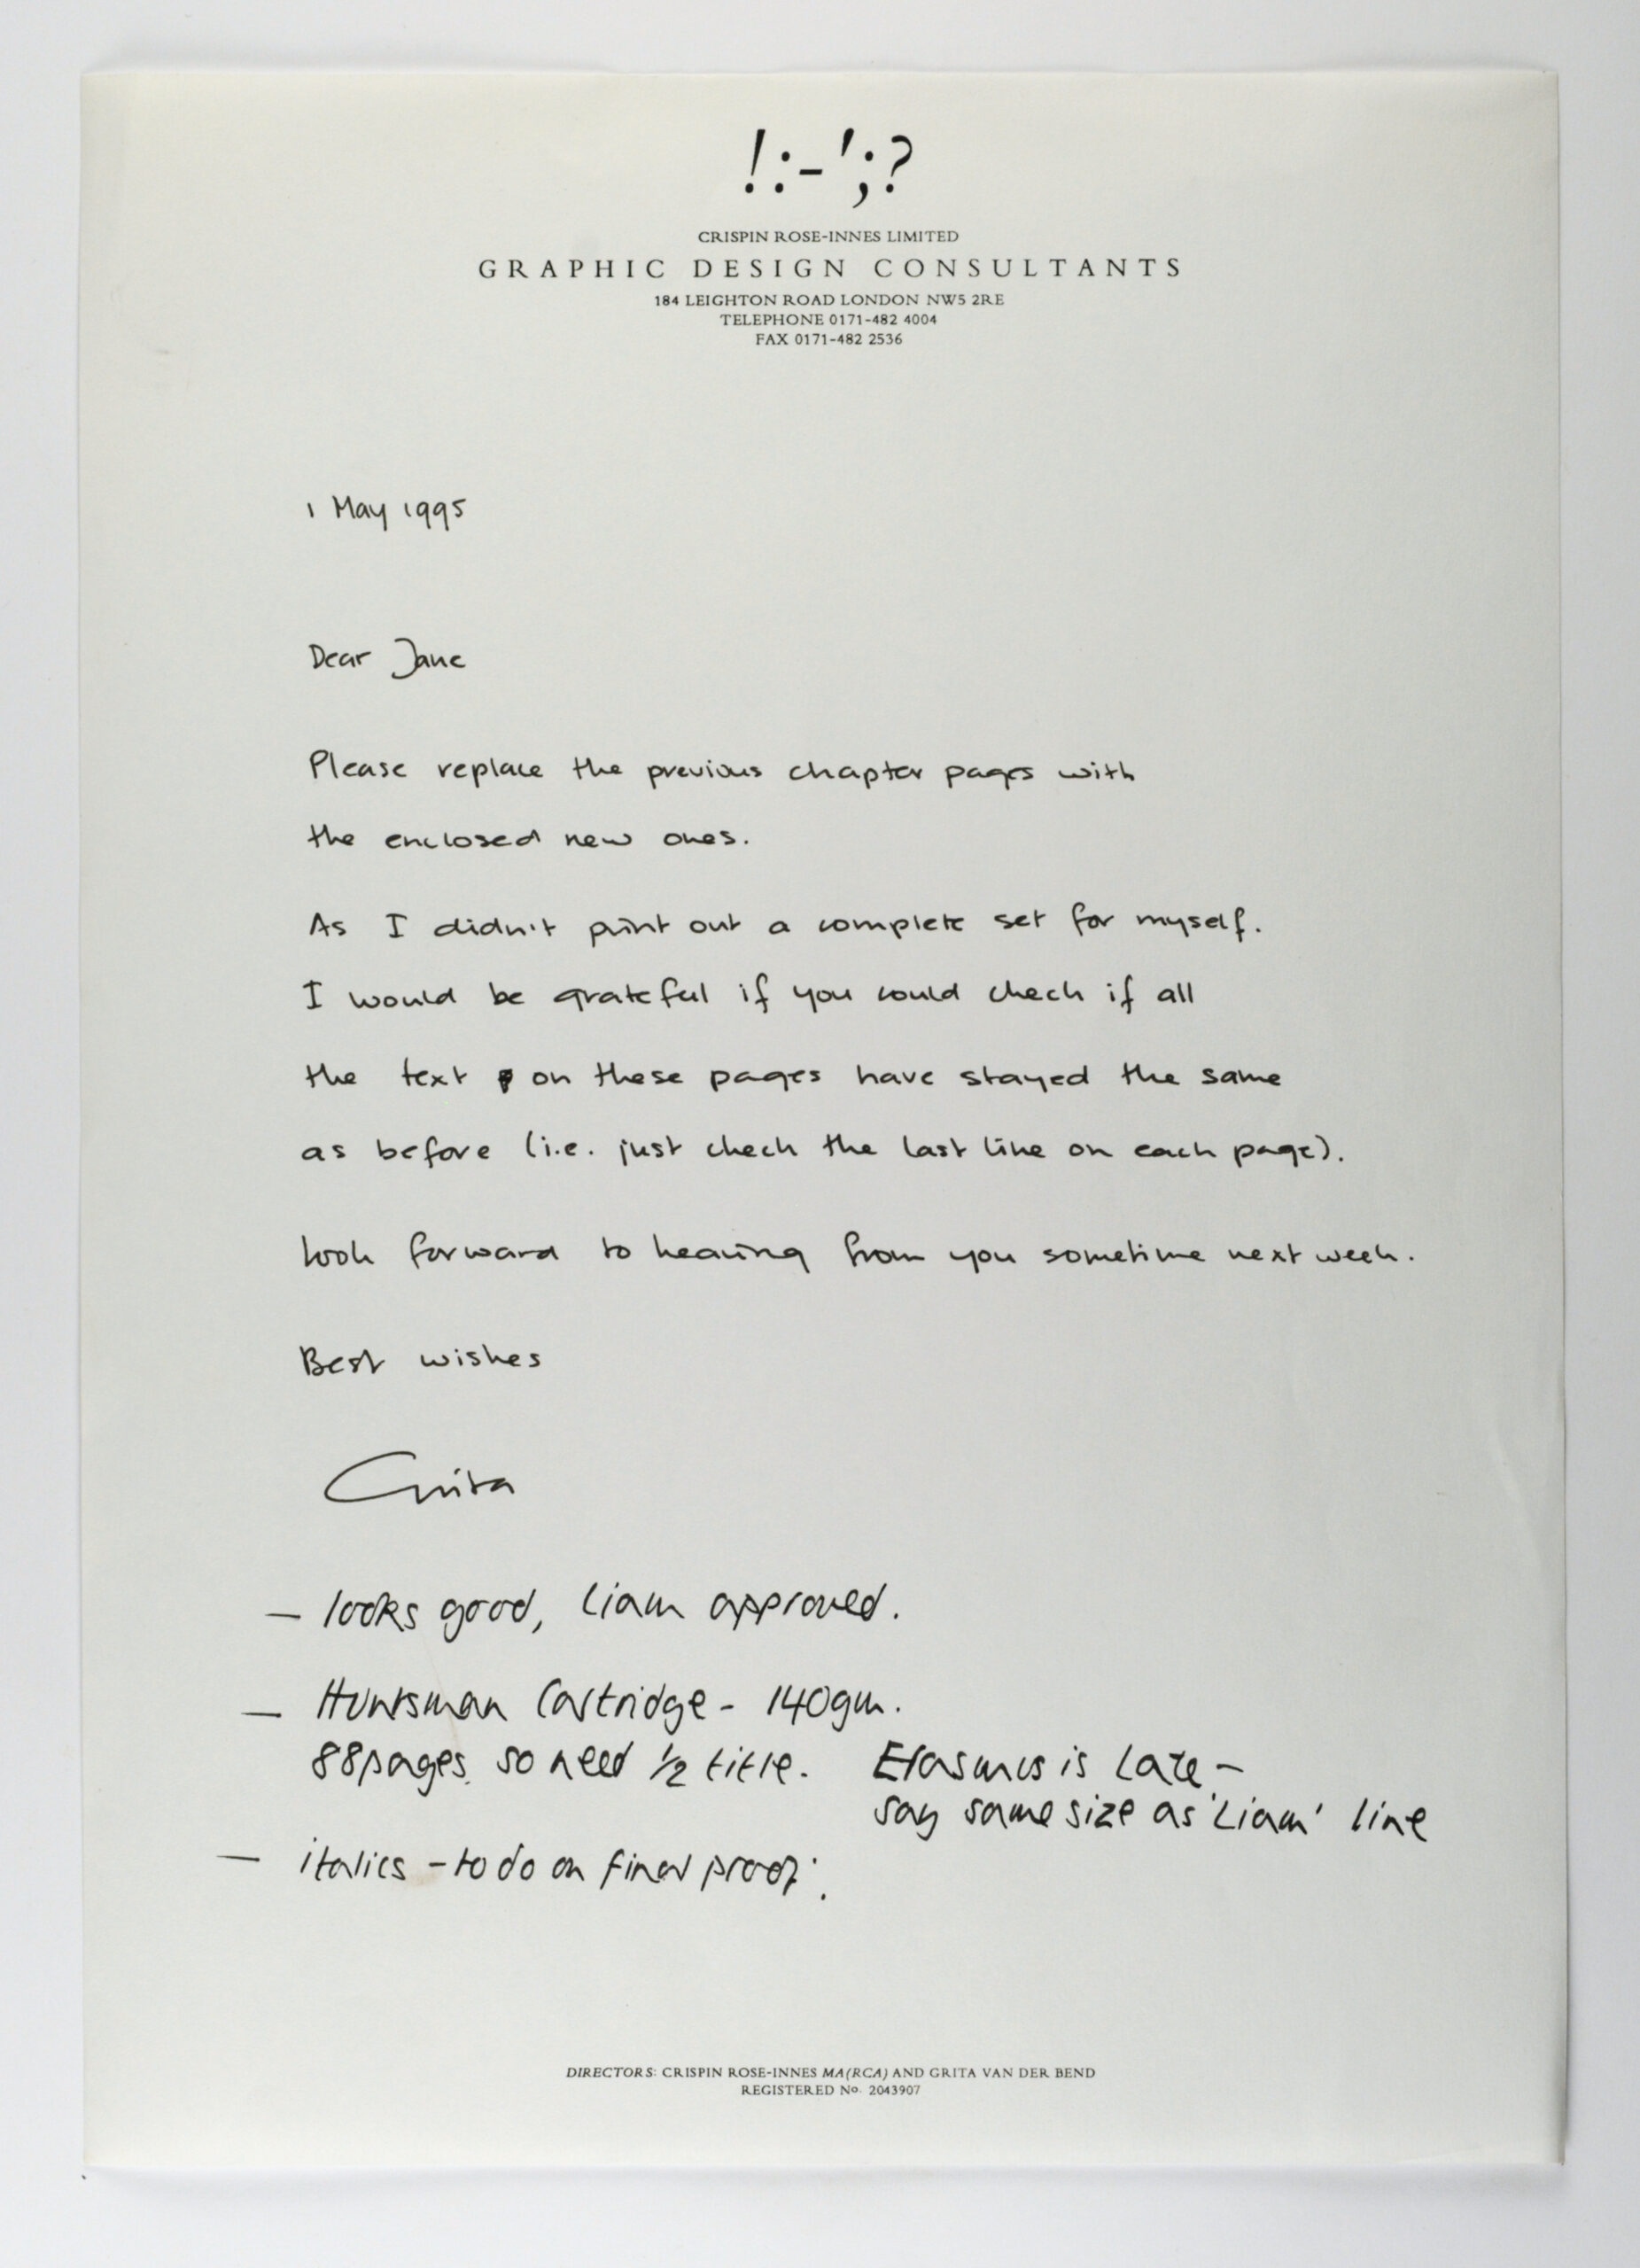 !:-';?
CRISPIN ROSE-INNES LIMITED
GRAPHIC DESIGN CONSULTANTS
184 LEIGHTON ROAD LONDON NW5 2RE
TELEPHONE 0171-482 4004
FAX 0171-482 2536
1 May 1995
Dear Jane
Please replace the previous chapter pages with
the enclosed new ones.
As I didn't print out a complete set for myself.
I would be grateful if you could check if all
the text on these pages have stayed the same
as before (i.e. just check the last line on each page).
look forward to hearing from you sometime next week.
Best wishes
Grita
- looks good, Liam approved.
- Huntsman Cartridge - 140gm.
88pages. so need 1/2 title.
Erasmus is Late -
say same size as 'Liam' line
- italics - to do on final proof.
DIRECTORS: CRISPIN ROSE-INNES MA(RCA) AND GRITA VAN DER BEND
REGISTERED No. 2043907